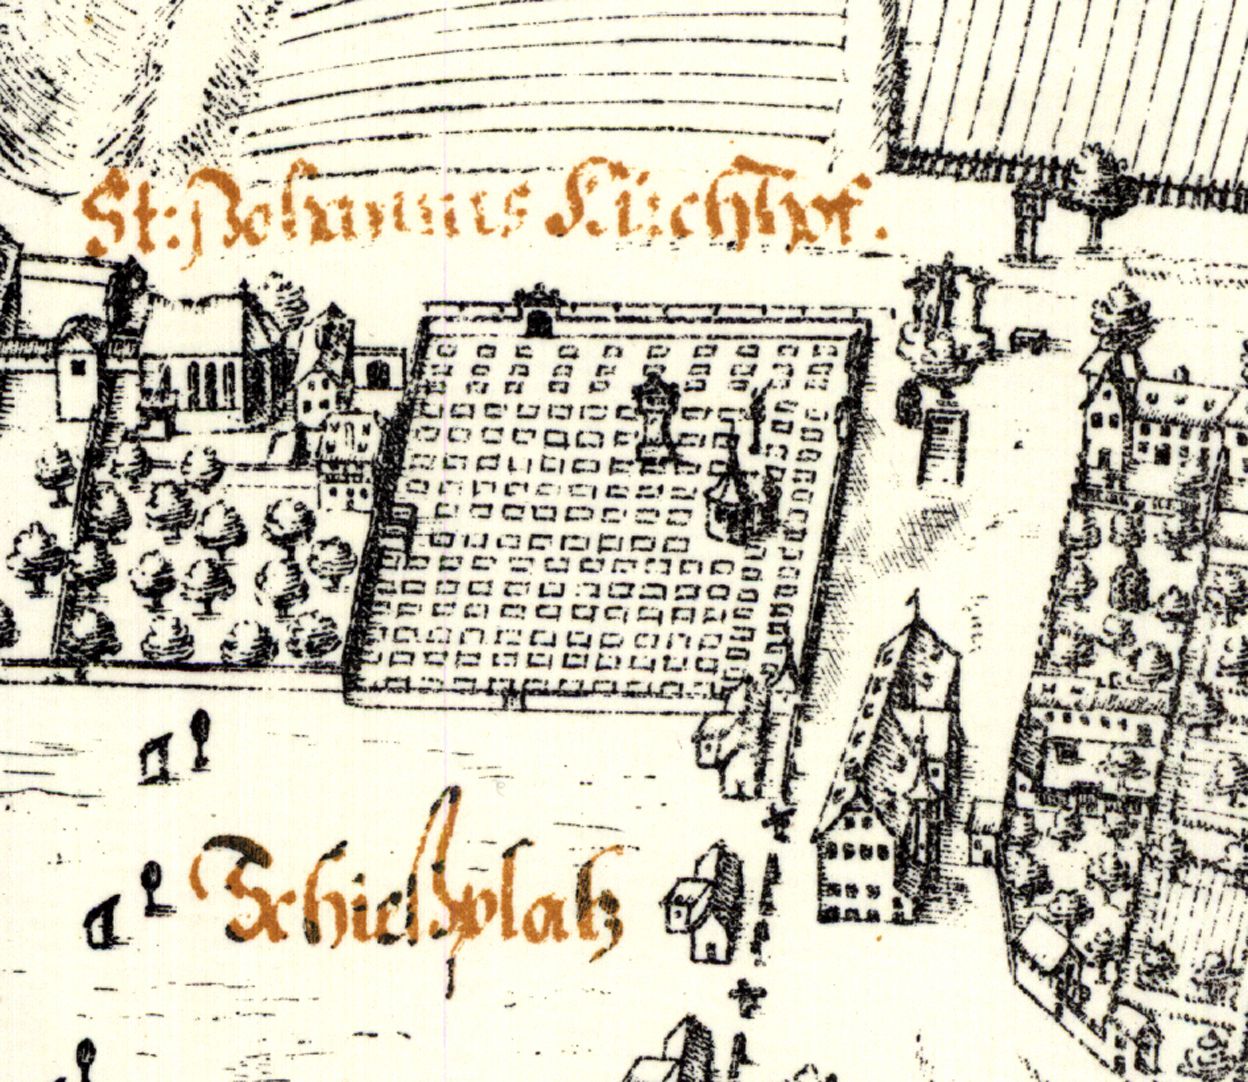 St: Johannis Kirchhof.
Schießplatz